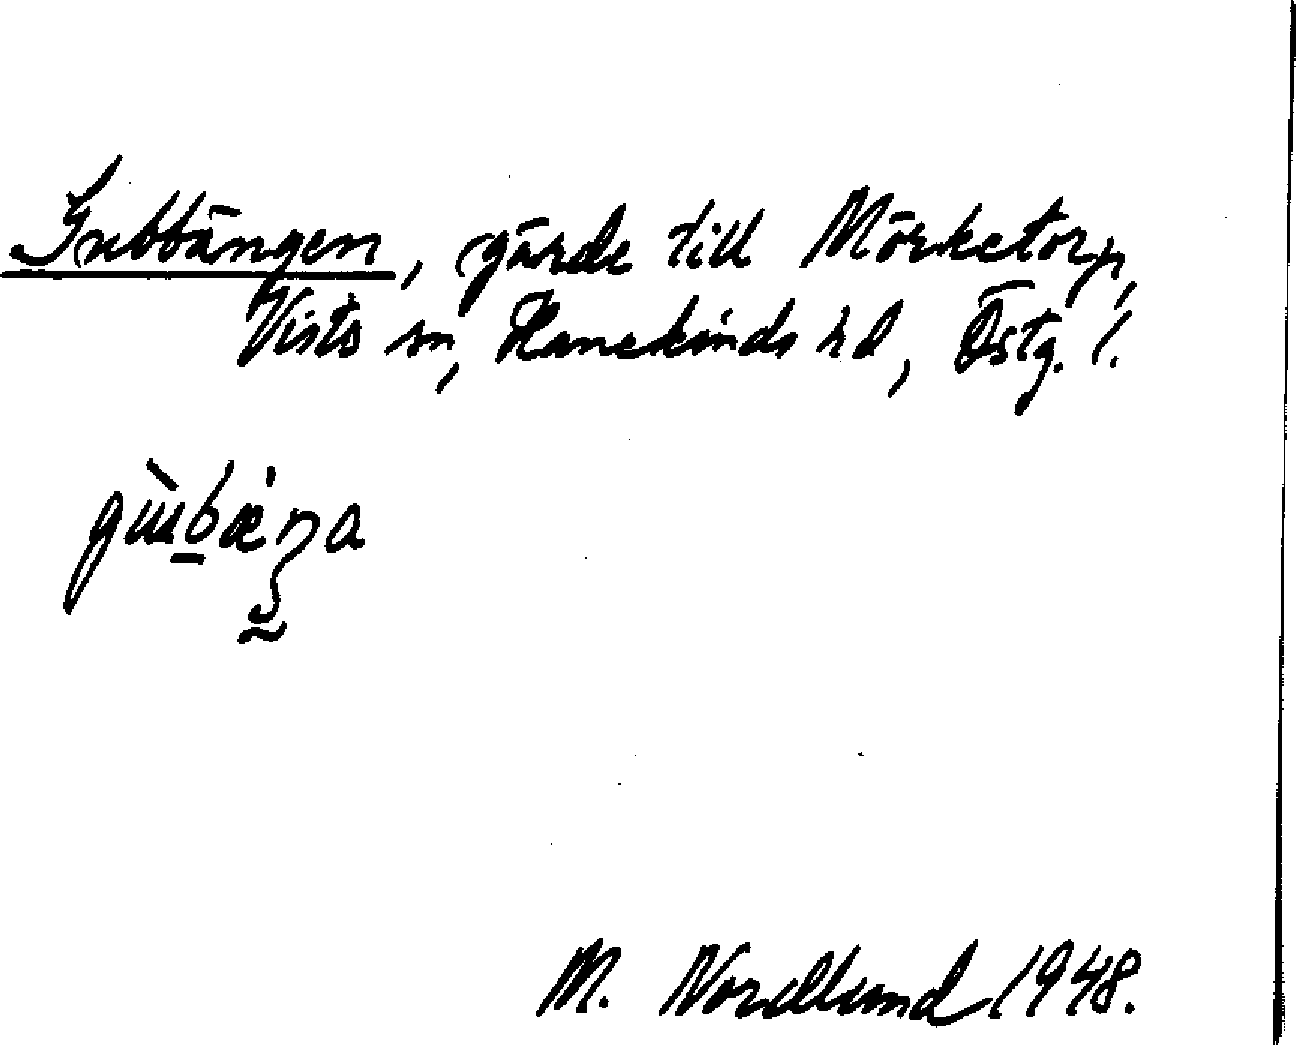 Gubbängen, gärde till Mörketorp,
Vists sn, Hanekinds hd, Östg. l.
gùbæ̀ŋa
M. Nordlund 1948.